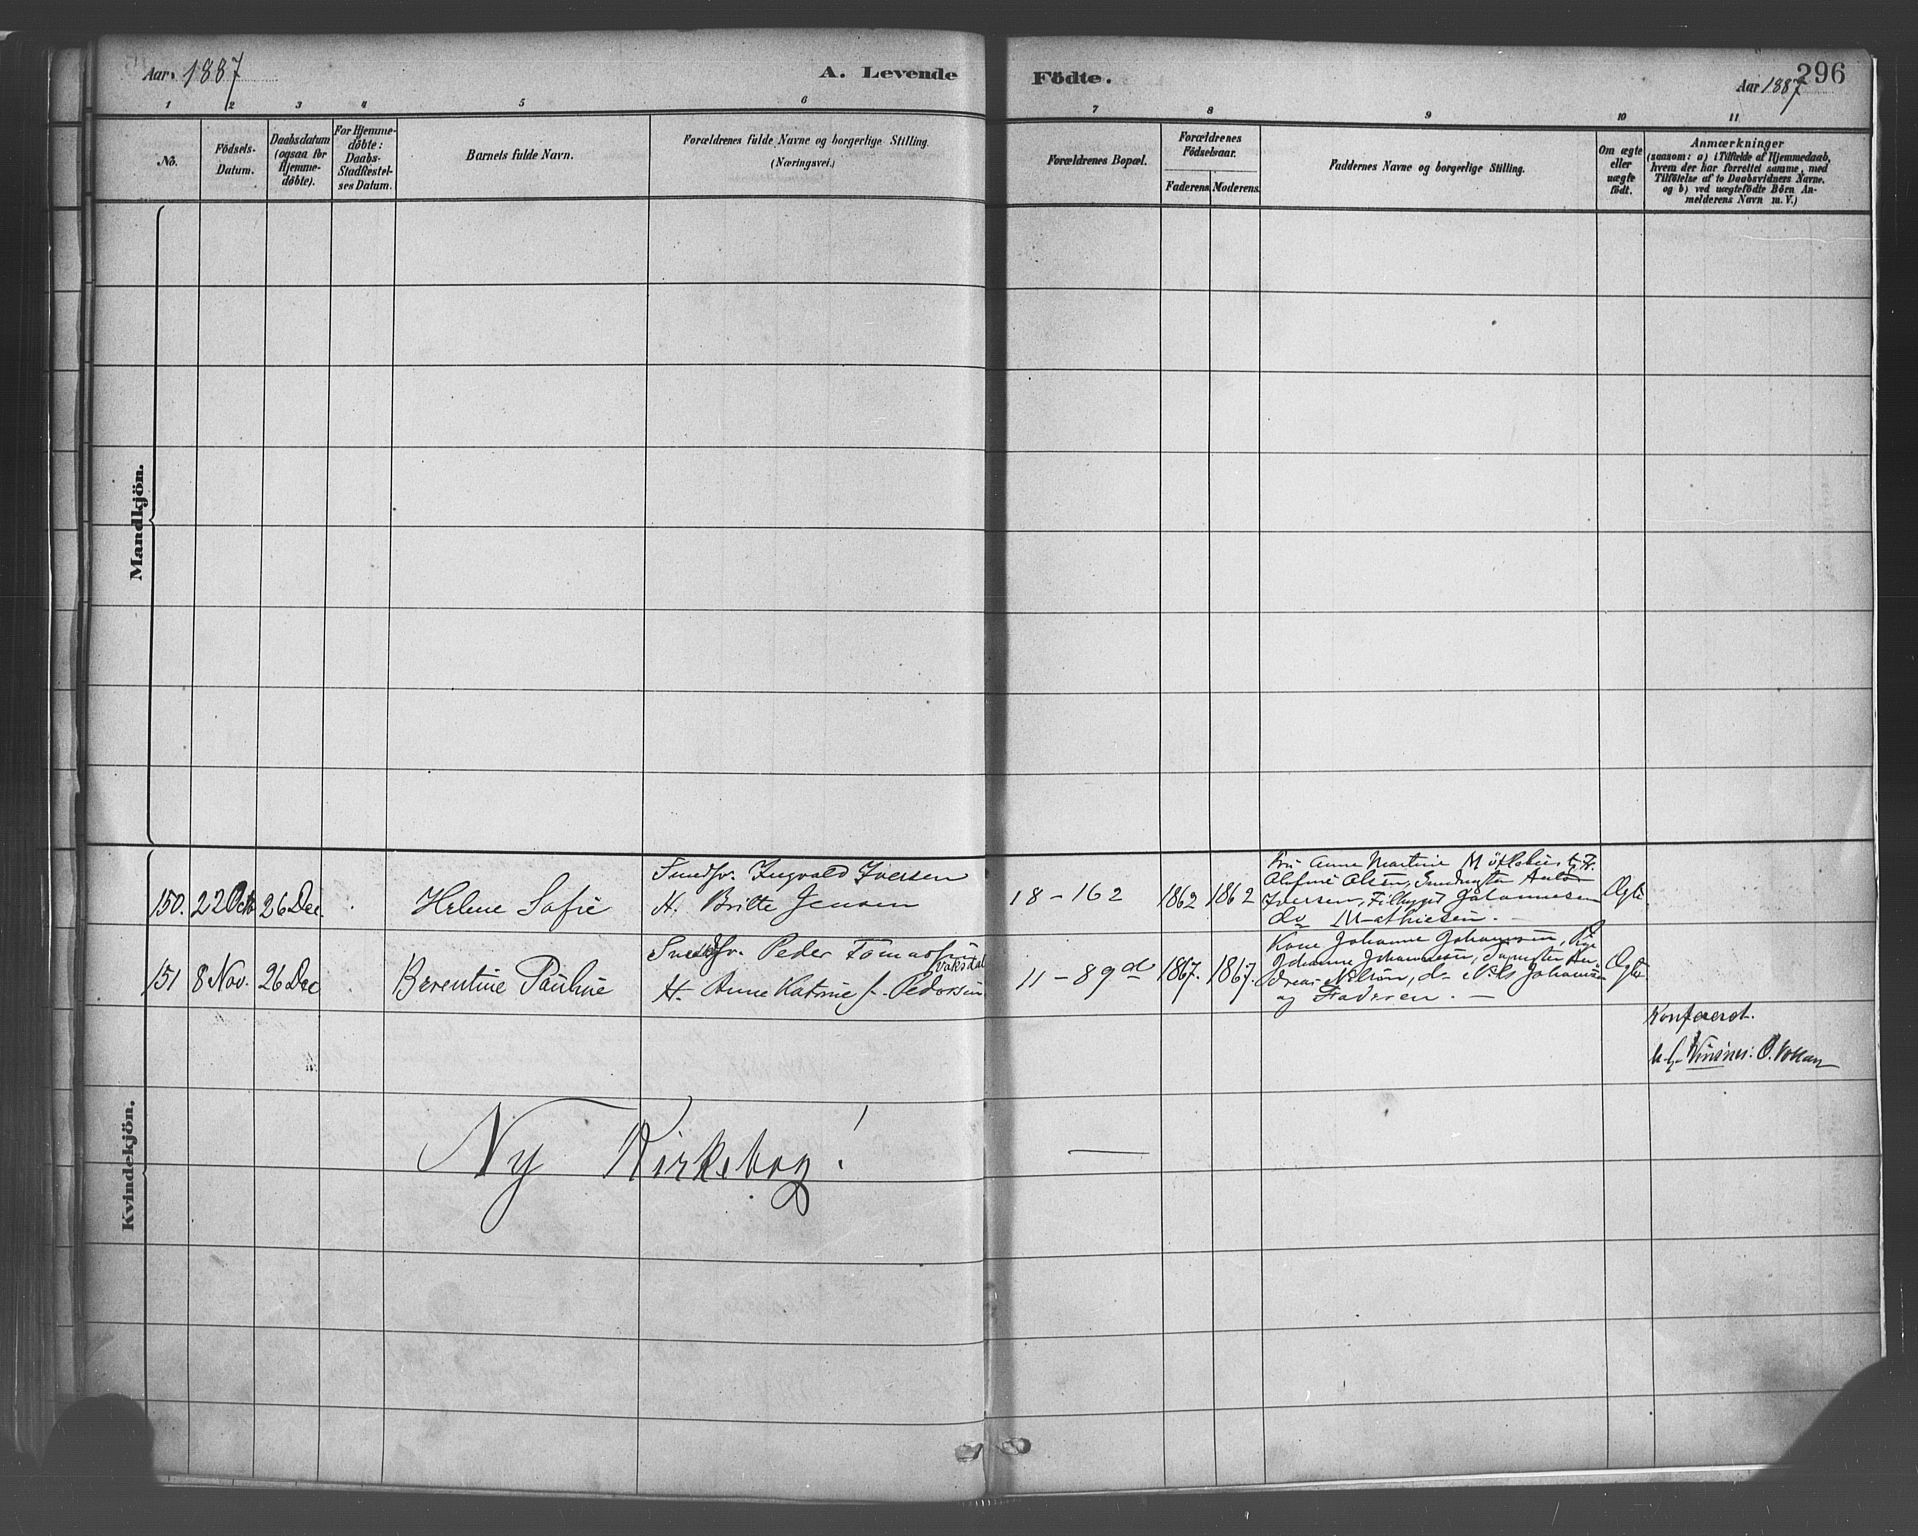 Aar 1887
A. Levende
Födte.
Aar 1887
296
1 2 3 4 5 6 7 8 9 10 11
No.
Födsels-
Datum.
Daabsdatum
(ogsaa for
Hjemme-
døbte).
For Hjemme-
døbte:
Daabs-
Stadfæstel-
ses Datum.
Barnets fulde Navn.
Forældrenes fulde Navne og borgerlige Stilling.
(Næringsvei.)
Forældrenes Bopæl.
Forældrenes
Födselsaar.
Faderens.
Moderens.
Faddernes Navne og borgerlige Stilling.
Om ægte
eller
uægte
födt.
Anmærkninger
(saasom: a) i Tilfælde af Hjemmedaab,
hvem der har forrettet samme, med
Tilföielse af to Daabsvidners Navne.
og b) ved uægtefödte Börn An-
melderens Navn m. V.)
Mandkjön.
150. 22 Octb 26 Dec.
Helene Sofie
Smedsv. Ingvald Iversen
H. Britte Jensen
18 - 162
1862 1862
Anne Martine
Olufine Olsen, Anton
Iversen, Johannesen
do Mathiesen. -
Ægte
151 8 Nov. 26 Dec
Berentine Pauline
Peder Tomassen
Vaksdal
H. Anne Katrine f. Pedersen
11 - 89 d
1867. 1867.
Kone Johanne Johannesen, Pige
Johanne Johannesen, An-
dreas Nilsen, do Nils Johannesen
og Faderen. -
Ægte
Konfereret.
Vinsnes:
Kvindekjön.
Ny Kirkebog! —